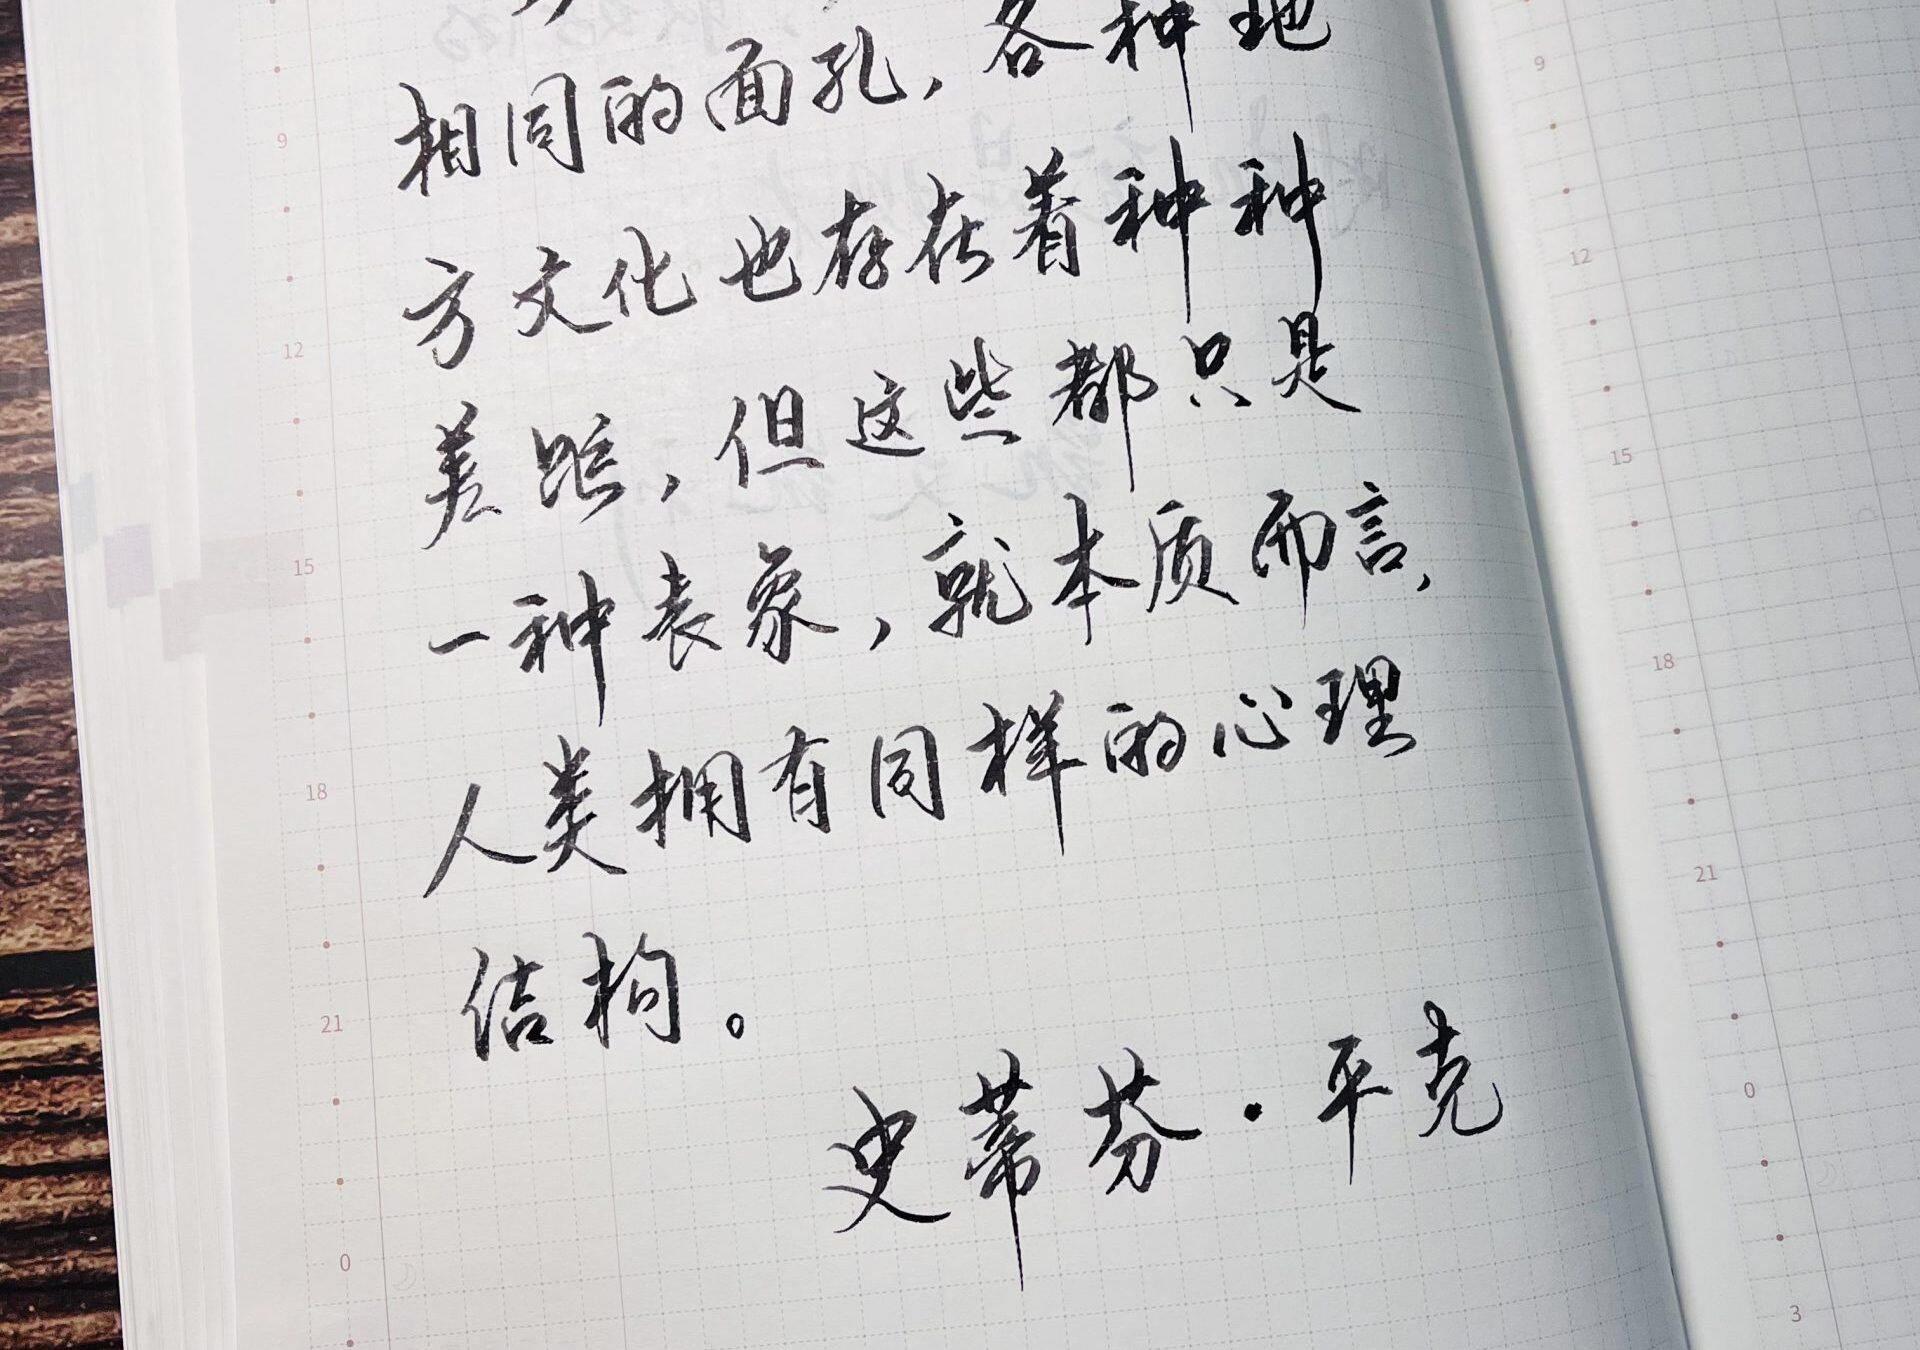 相同的面孔，各种地
方文化也存在着种种
差距，但这些都只是
一种表象，就本质而言，
人类拥有同样的心理
结构。
史蒂芬·平克
9
12
15
18
21
0
9
12
15
18
21
0
3